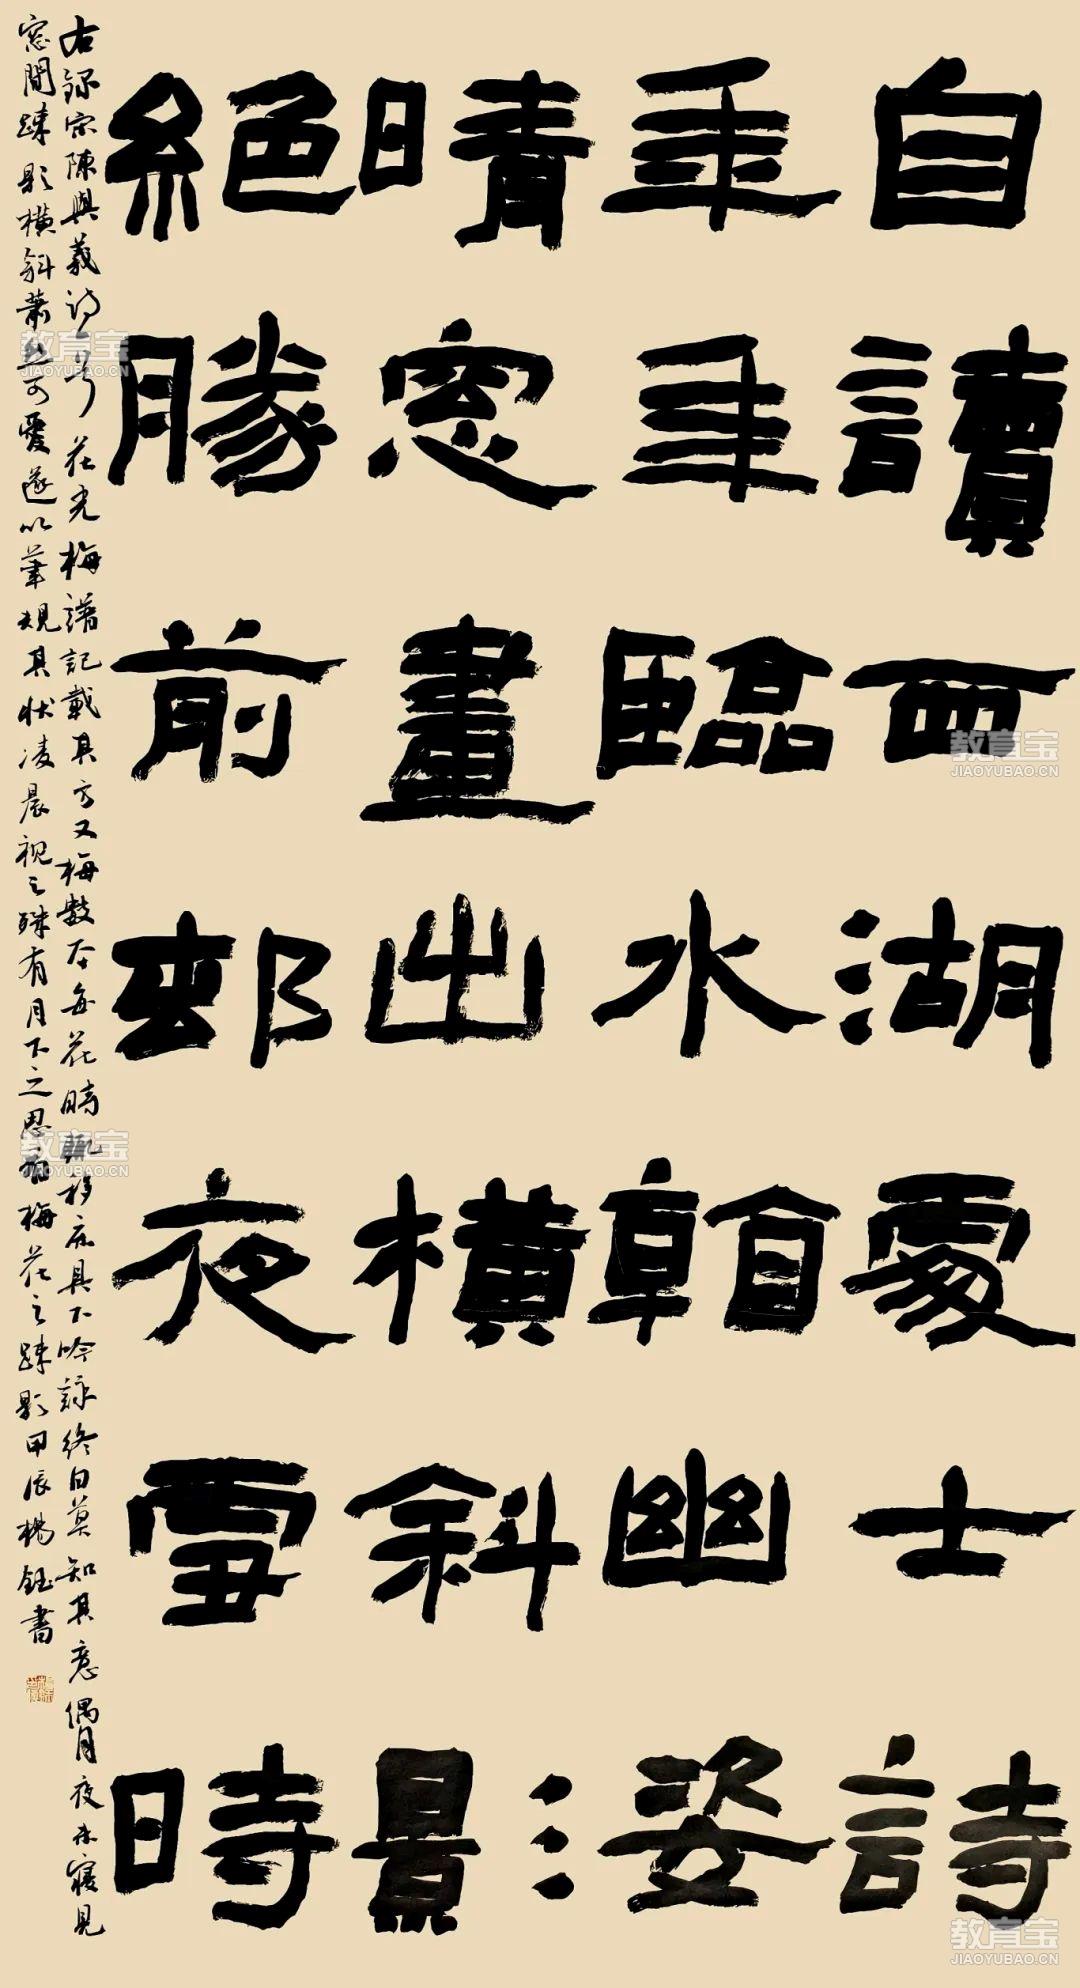 自讀西湖處士詩
年年臨水看幽姿
晴窓畫出橫斜影
絕勝前邨夜雪時
右錄宋陳與義詩一首花光梅譜記載其方又梅數本每花時輒移床其下吟詠終日莫知其意偶月夜未寢見
窓間疎影橫斜蕭然可愛遂以筆規其狀凌晨視之殊有月下之思有梅花之疎影甲辰楊鈺書
教育宝
JIAOYUBAO.CN
教育宝
JIAOYUBAO.CN
教育宝
JIAOYUBAO.CN
教育宝
JIAOYUBAO.CN